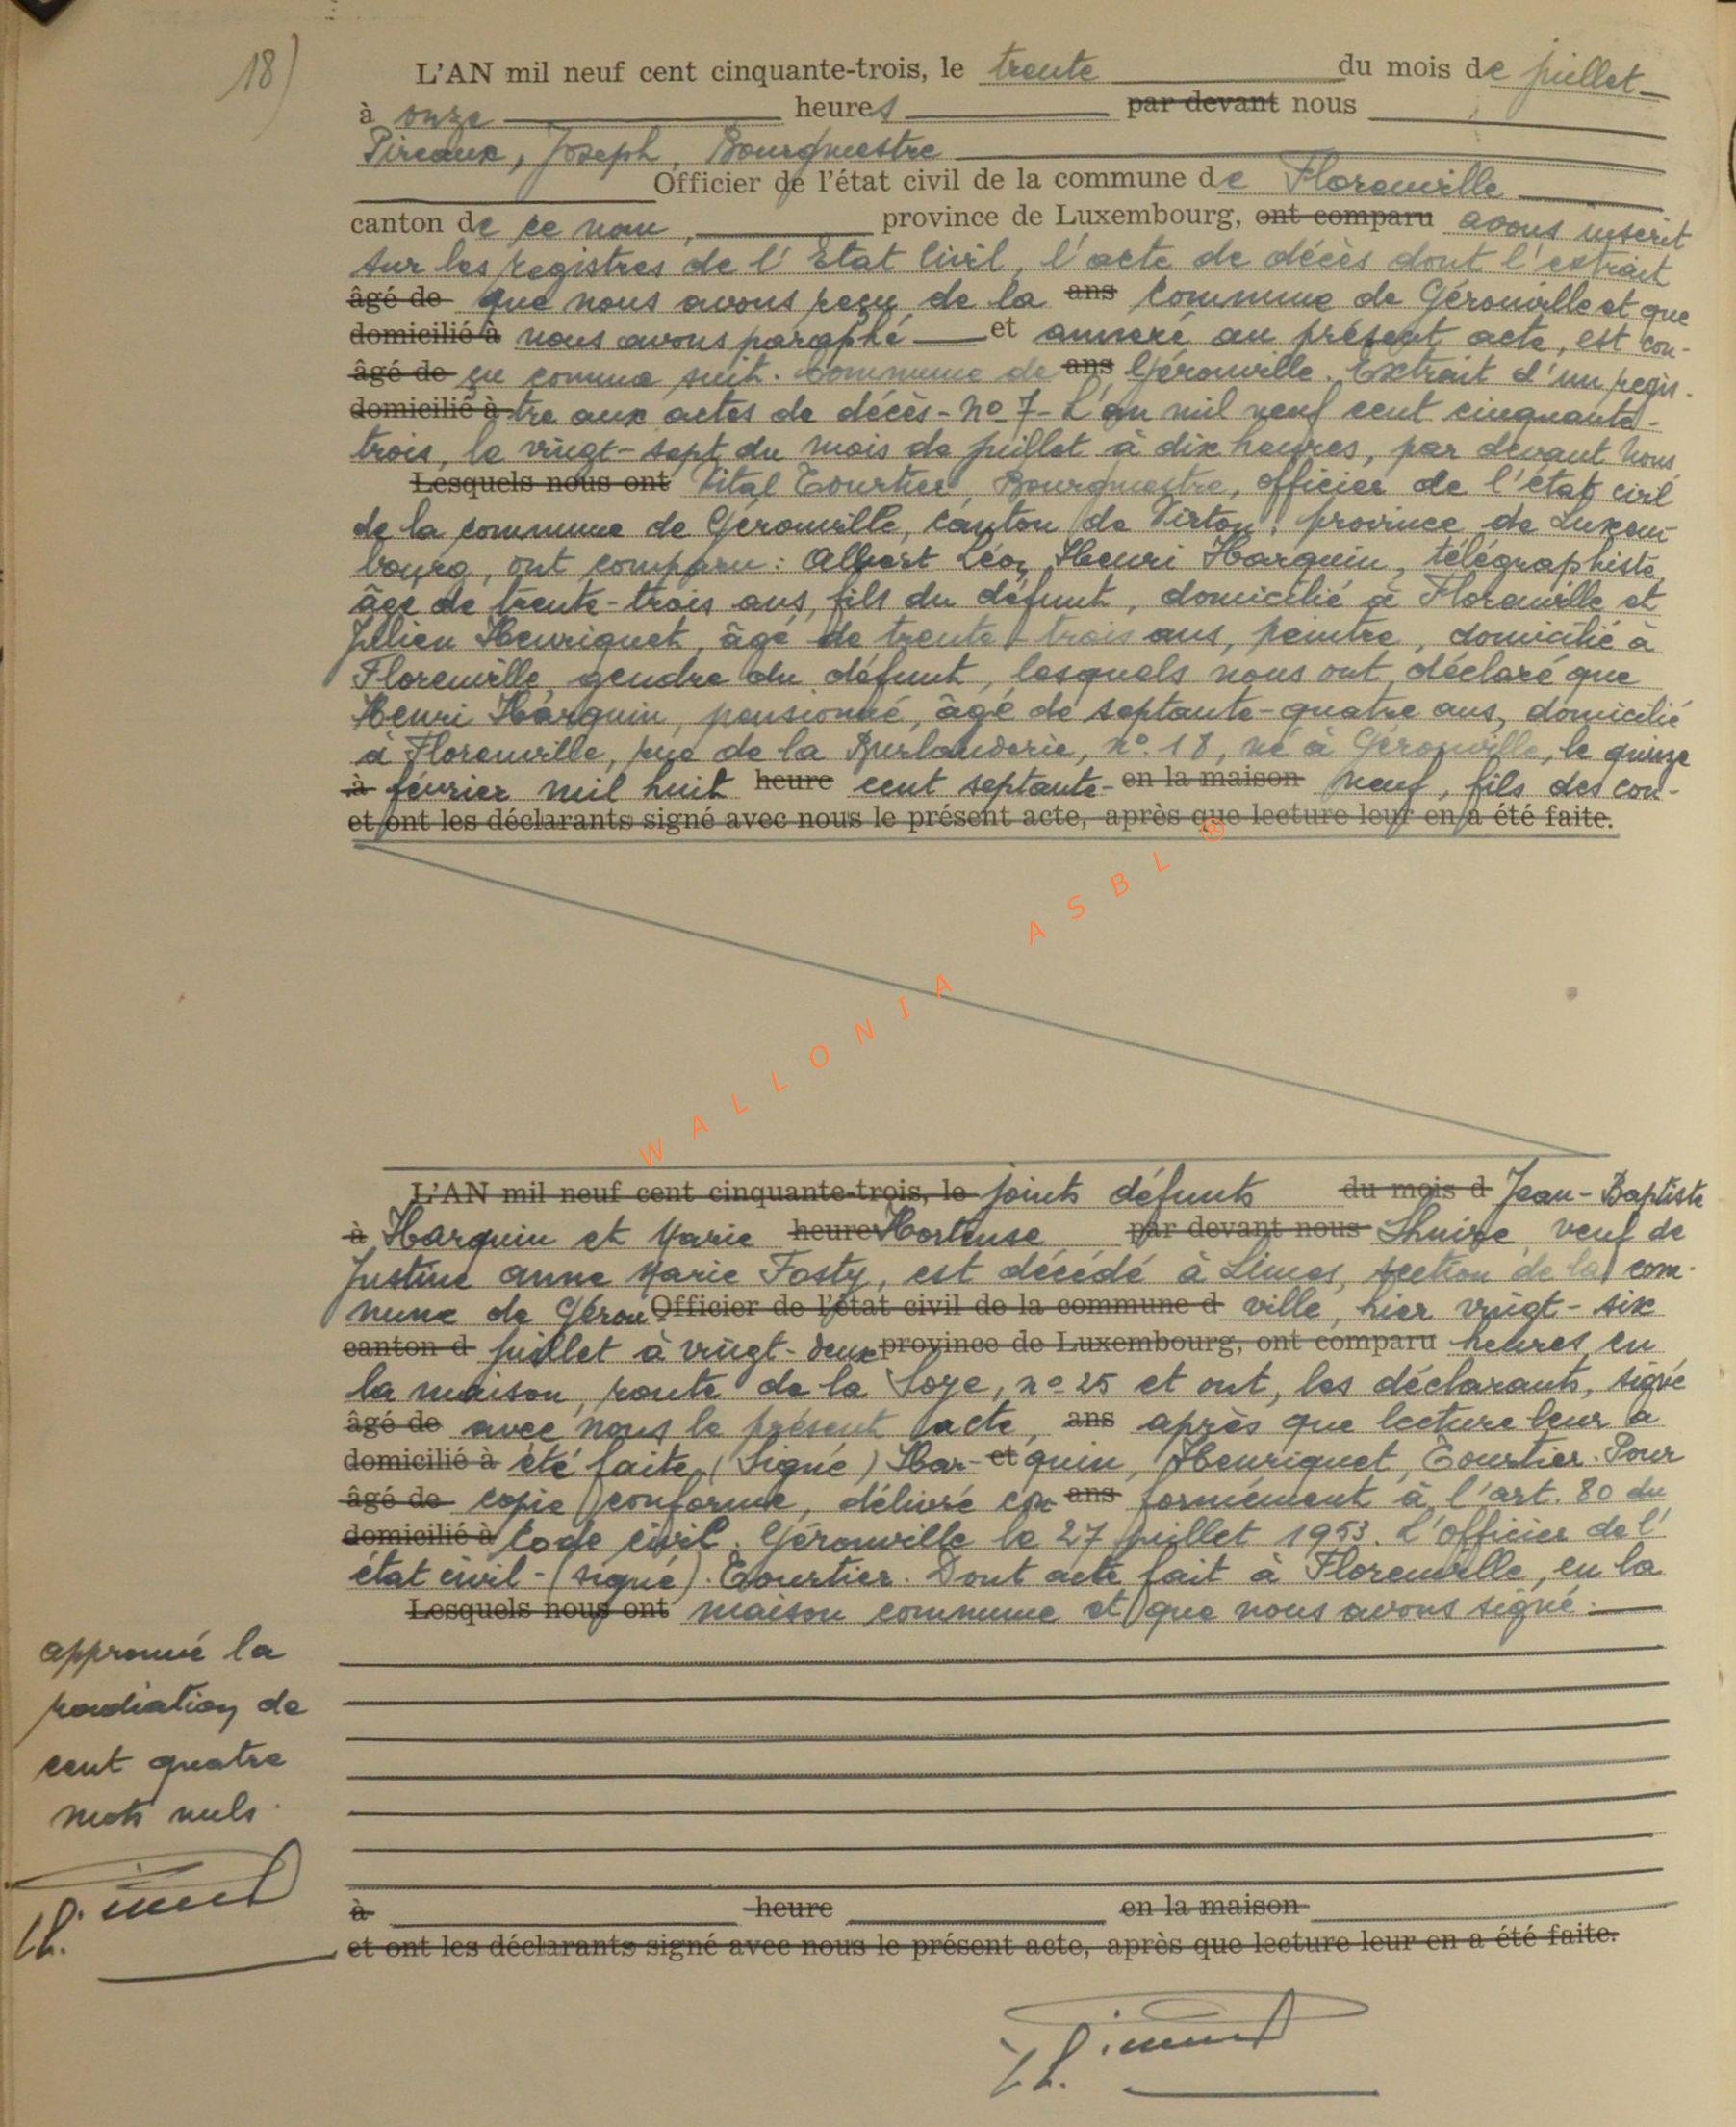 18)
L'AN mil neuf cent cinquante-trois, le trente du mois de juillet
à onze heures par devant nous
Pireaux, Joseph, Bourgmestre
Officier de l'état civil de la commune de Florenville
canton de ce nom, province de Luxembourg, ont comparu avons inscrit
sur les registres de l'Etat Civil, l'acte de décès dont l'extrait
âgé de que nous avons reçu de la ans Commune de Gérouville et que
domicilié à nous avons paraphé et annexé au présent acte, est con-
âgé de çu comme suit. Commune de ans Gérouville. Extrait d'un regis-
domicilié à tre aux actes de décès - no 7 - L'an mil neuf cent cinquante-
trois, le vingt-sept du mois de juillet à dix heures, par devant Nous
Lesquels nous ont Vital Tourtier, Bourgmestre, officier de l'état civil
de la commune de Gérouville, canton de Virton, province de Luxem-
bourg, ont comparu: Albert Léon Henri Harquin, télégraphiste,
âgé de trente-trois ans, fils du défunt, domicilié à Florenville et
Julien Henriquet, âgé de trente-trois ans, peintre, domicilié à
Florenville, gendre du défunt, lesquels nous ont déclaré que
Henri Harquin, pensionné, âgé de septante-quatre ans, domicilié
à Florenville, rue de la n° 18, né à Gérouville, le quinze
à février mil huit heure cent septante- en la maison neuf, fils des con-
et ont les déclarants signé avec nous le présent acte, après que lecture leur en a été faite.
WALLONIA ASBL ®
L'AN mil neuf cent cinquante-trois, le joints défunts du mois d Jean-Baptiste
à Harquin et Marie heure Hortense par devant nous veuf de
Justine Anne Marie Fosty, est décédé à Limes, section de la com-
mune de Gérou Officier de l'état civil de la commune d ville, hier vingt-six
canton d juillet à vingt-deux province de Luxembourg, ont comparu heures, en
la maison, route de la Soye, no 25 et ont, les déclarants, signé
âgé de avec nous le présent acte, ans après que lecture leur a
domicilié à été faite, (Signé) Har- et quin, Henriquet, Tourtier. Pour
âgé de copie conforme, délivré con ans formément à l'art. 80 du
domicilié à Code civil. Gérouville le 27 juillet 1953. L'officier de l'
état civil - (signé). Tourtier. Dont acte fait à Florenville, en la
Lesquels nous ont maison commune et que nous avons signé.
approuvé la
radiation de
cent quatre
mots nuls.
à heure en la maison
et ont les déclarants signé avec nous le présent acte, après que lecture leur en a été faite.